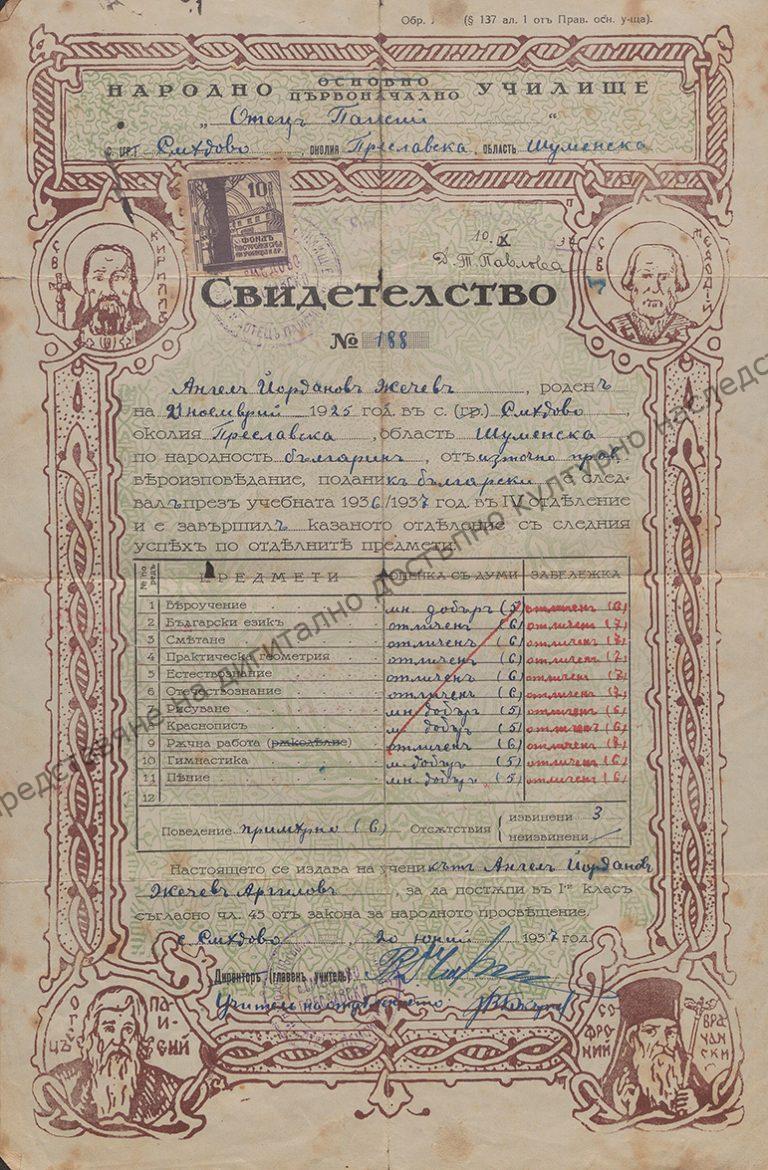 Обр. (§ 137 ал. 1 отъ Прав. осн. у-ща).
НАРОДНО ОСНОВНО ПЪРВОНАЧАЛНО УЧИЛИЩЕ
„Отецъ Паисий“
с. Смѫдово, околия Преславска, область Шуменска
10
ФОНДЪ
10. X
Д. Т. Павлова
СВ КИРИЛЪ
СВ МЕТОДИЙ
Свидетелство
№ 188
Ангелъ Йордановъ Жечевъ, роденъ
на 21 ноемврий 1925 год. въ с. (гр.) Смѫдово,
околия Преславска, область Шуменска
по народность българинъ, отъ източно прав.
вѣроизповѣдание, поданикъ български, е след-
валъ презъ учебната 1936/1937 год. въ IV отдѣление
и е завършилъ казаното отдѣление съ следния
успѣхъ по отдѣлнитѣ предмети:
№ по редъ ПРЕДМЕТИ ОЦЕНКА СЪ ДУМИ ЗАБЕЛЕЖКА
1 Вѣроучение мн. добъръ (5) отличенъ (6)
2 Български езикъ отличенъ (6) отличенъ (7)
3 Смѣтане отличенъ (6) отличенъ (7)
4 Практическа геометрия отличенъ (6) отличенъ (7)
5 Естествознание отличенъ (6) отличенъ (7)
6 Отечествознание отличенъ (6) отличенъ (7)
7 Рисуване мн. добъръ (5) отличенъ (6)
8 Краснописъ м. добъръ (5) отличенъ (6)
9 Рѫчна работа (рѫкодѣлие) отличенъ (6) отличенъ (7)
10 Гимнастика м. добъръ (5) отличенъ (6)
11 Пѣние мн. добъръ (5) отличенъ (6)
12
Поведение примѣрно (6) Отсѫтствия { извинени 3
неизвинени
Настоящето се издава на ученикътъ Ангелъ Йордановъ
Жечевъ Аргировъ, за да постѫпи въ Iия класъ
съгласно чл. 45 отъ закона за народното просвѣщение.
с. Смѫдово, 20 юний 1937 год.
Директоръ (главенъ учитель)
Учитель на отдѣлението:
ОТЕЦЪ ПАИСИЙ
СОФРОНИЙ ВРАЧАНСКИ
представяне на дигитално достъпно културно наследство